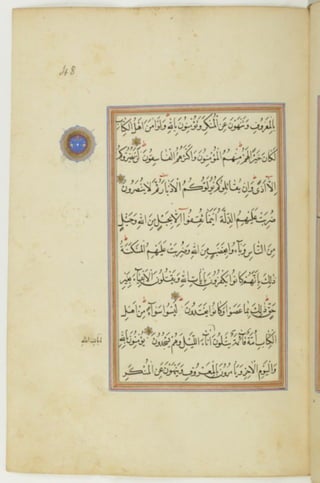 48
بِالْمَعْرُوفِ وَتَنْهَوْنَ عَنِ الْمُنْكَرِ وَتُؤْمِنُونَ بِاللّٰهِ وَلَوْ اٰمَنَ اَهْلُ الْكِتَابِ
لَكَانَ خَيْرًا لَهُمْ مِنْهُمُ الْمُؤْمِنُونَ وَاَكْثَرُهُمُ الْفَاسِقُونَ لَنْ يَضُرُّوكُمْ
اِلَّا اَذًى وَاِنْ يُقَاتِلُوكُمْ يُوَلُّوكُمُ الْاَدْبَارَ ثُمَّ لَا يُنْصَرُونَ
ضُرِبَتْ عَلَيْهِمُ الذِّلَّةُ اَيْنَمَا ثُقِفُوا اِلَّا بِحَبْلٍ مِنَ اللّٰهِ وَحَبْلٍ
مِنَ النَّاسِ وَبَاءُو بِغَضَبٍ مِنَ اللّٰهِ وَضُرِبَتْ عَلَيْهِمُ الْمَسْكَنَةُ
ذٰلِكَ بِاَنَّهُمْ كَانُوا يَكْفُرُونَ بِاٰيَاتِ اللّٰهِ وَيَقْتُلُونَ الْاَنْبِيَاءَ بِغَيْرِ
حَقٍّ ذٰلِكَ بِمَا عَصَوْا وَكَانُوا يَعْتَدُونَ لَيْسُوا سَوَاءً مِنْ اَهْلِ
الْكِتَابِ اُمَّةٌ قَائِمَةٌ يَتْلُونَ اٰيَاتِ اللّٰهِ اٰنَاءَ اللَّيْلِ وَهُمْ يَسْجُدُونَ يُؤْمِنُونَ بِاللّٰهِ
اٰيَاتِ اللّٰهِ
وَالْيَوْمِ الْاٰخِرِ وَيَأْمُرُونَ بِالْمَعْرُوفِ وَيَنْهَوْنَ عَنِ الْمُنْكَرِ